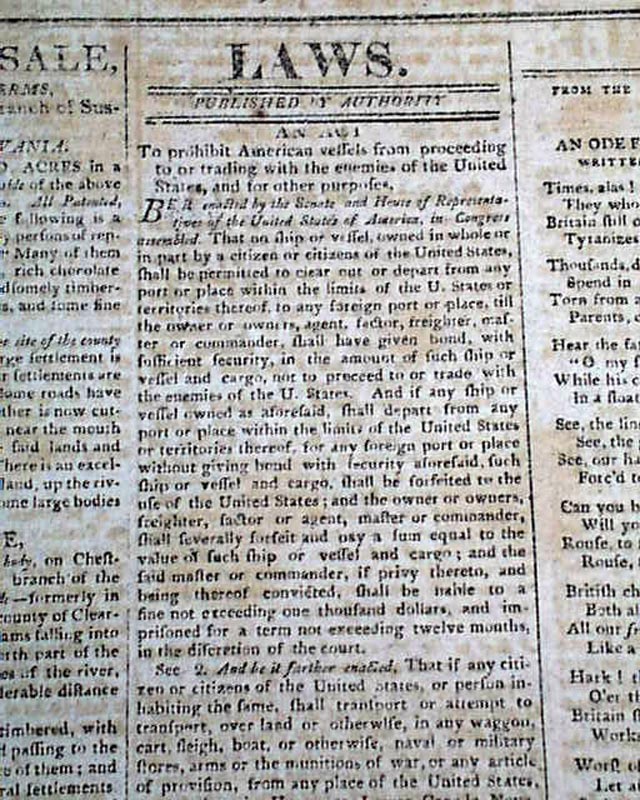 SALE,
ERMS,
ranch of Sus-
VANIA.
ACRES in a
of the above
All Patented,
following is a
persons of rep-
Many of them
rich chocolate
dsomely timber-
s, and some fine
site of the county
rge settlement is
settlements are
ome roads have
ther is now cut-
near the mouth
said lands and
There is an excel-
land, up the riv-
ome large bodies
E,
body, on Chest-
branch of the
—formerly in
county of Clear-
ams falling into
rth part of the
of the river,
derable distance
timbered, with
passing to the
of them; and
ral settlements
LAWS.
PUBLISHED BY AUTHORITY
AN ACT
To prohibit American veſſels from proceeding
to or trading with the enemies of the United
States, and for other purpoſes,
BE it enacted by the Senate and House of Representa-
tives of the United States of America, in Congress
assembled. That no ſhip or veſſel, owned in whole or
in part by a citizen or citizens of the United States,
ſhall be permitted to clear out or depart from any
port or place within the limits of the U. States or
territories thereof, to any foreign port or place, till
the owner or owners, agent, factor, freighter, maſ-
ter or commander, ſhall have given bond, with
ſufficient ſecurity, in the amount of ſuch ſhip or
veſſel and cargo, not to proceed to or trade with
the enemies of the U. States. And if any ſhip or
veſſel owned as aforeſaid, ſhall depart from any
port or place within the limits of the United States
or territories thereof, for any foreign port or place
without giving bond with ſecurity aforeſaid, ſuch
ſhip or veſſel and cargo, ſhall be forfeited to the
uſe of the United States; and the owner or owners,
freighter, factor or agent, maſter or commander,
ſhall ſeverally forfeit and pay a ſum equal to the
value of ſuch ſhip or veſſel and cargo; and the
ſaid maſter or commander, if privy thereto, and
being thereof convicted, ſhall be liable to a
fine not exceeding one thouſand dollars, and im-
priſoned for a term not exceeding twelve months,
in the diſcretion of the court.
Sec 2. And be it farther enacted, That if any citi-
zen or citizens of the United States, or perſon in-
habiting the ſame, ſhall tranſport or attempt to
tranſport, over land or otherwiſe, in any waggon,
cart, ſleigh, boat, or otherwiſe, naval or military
ſtores, arms or the munitions of war, or any article
of proviſion, from any place of the United States,
FROM THE
AN ODE F
WRITTEN
Times, alas!
They who
Britain ſtill
Tyranizes
Thouſands,
Spend in
Torn from
Parents,
Hear the fa
"O my
While his
In a float
See, the lin
See, the
See, our
Forc'd to
Can you
Will ye
Rouſe, to
Rouſe,
Britiſh ch
Both a
All our
Like a
Hark!
O'er t
Britain
Works
Worſt of
Let a